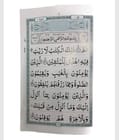 بِسْمِ اللهِ الرَّحْمٰنِ الرَّحِيْمِ
الٓمّٓ ذٰلِكَ الْكِتٰبُ لَا رَيْبَ
فِيْهِ هُدًى لِّلْمُتَّقِيْنَ الَّذِيْنَ
يُؤْمِنُوْنَ بِالْغَيْبِ وَيُقِيْمُوْنَ
الصَّلٰوةَ وَمِمَّا رَزَقْنٰهُمْ يُنْفِقُوْنَ
وَالَّذِيْنَ يُؤْمِنُوْنَ بِمَا اُنْزِلَ
اِلَيْكَ وَمَا اُنْزِلَ مِنْ قَبْلِكَ
وَبِالْاٰخِرَةِ هُمْ يُوْقِنُوْنَ